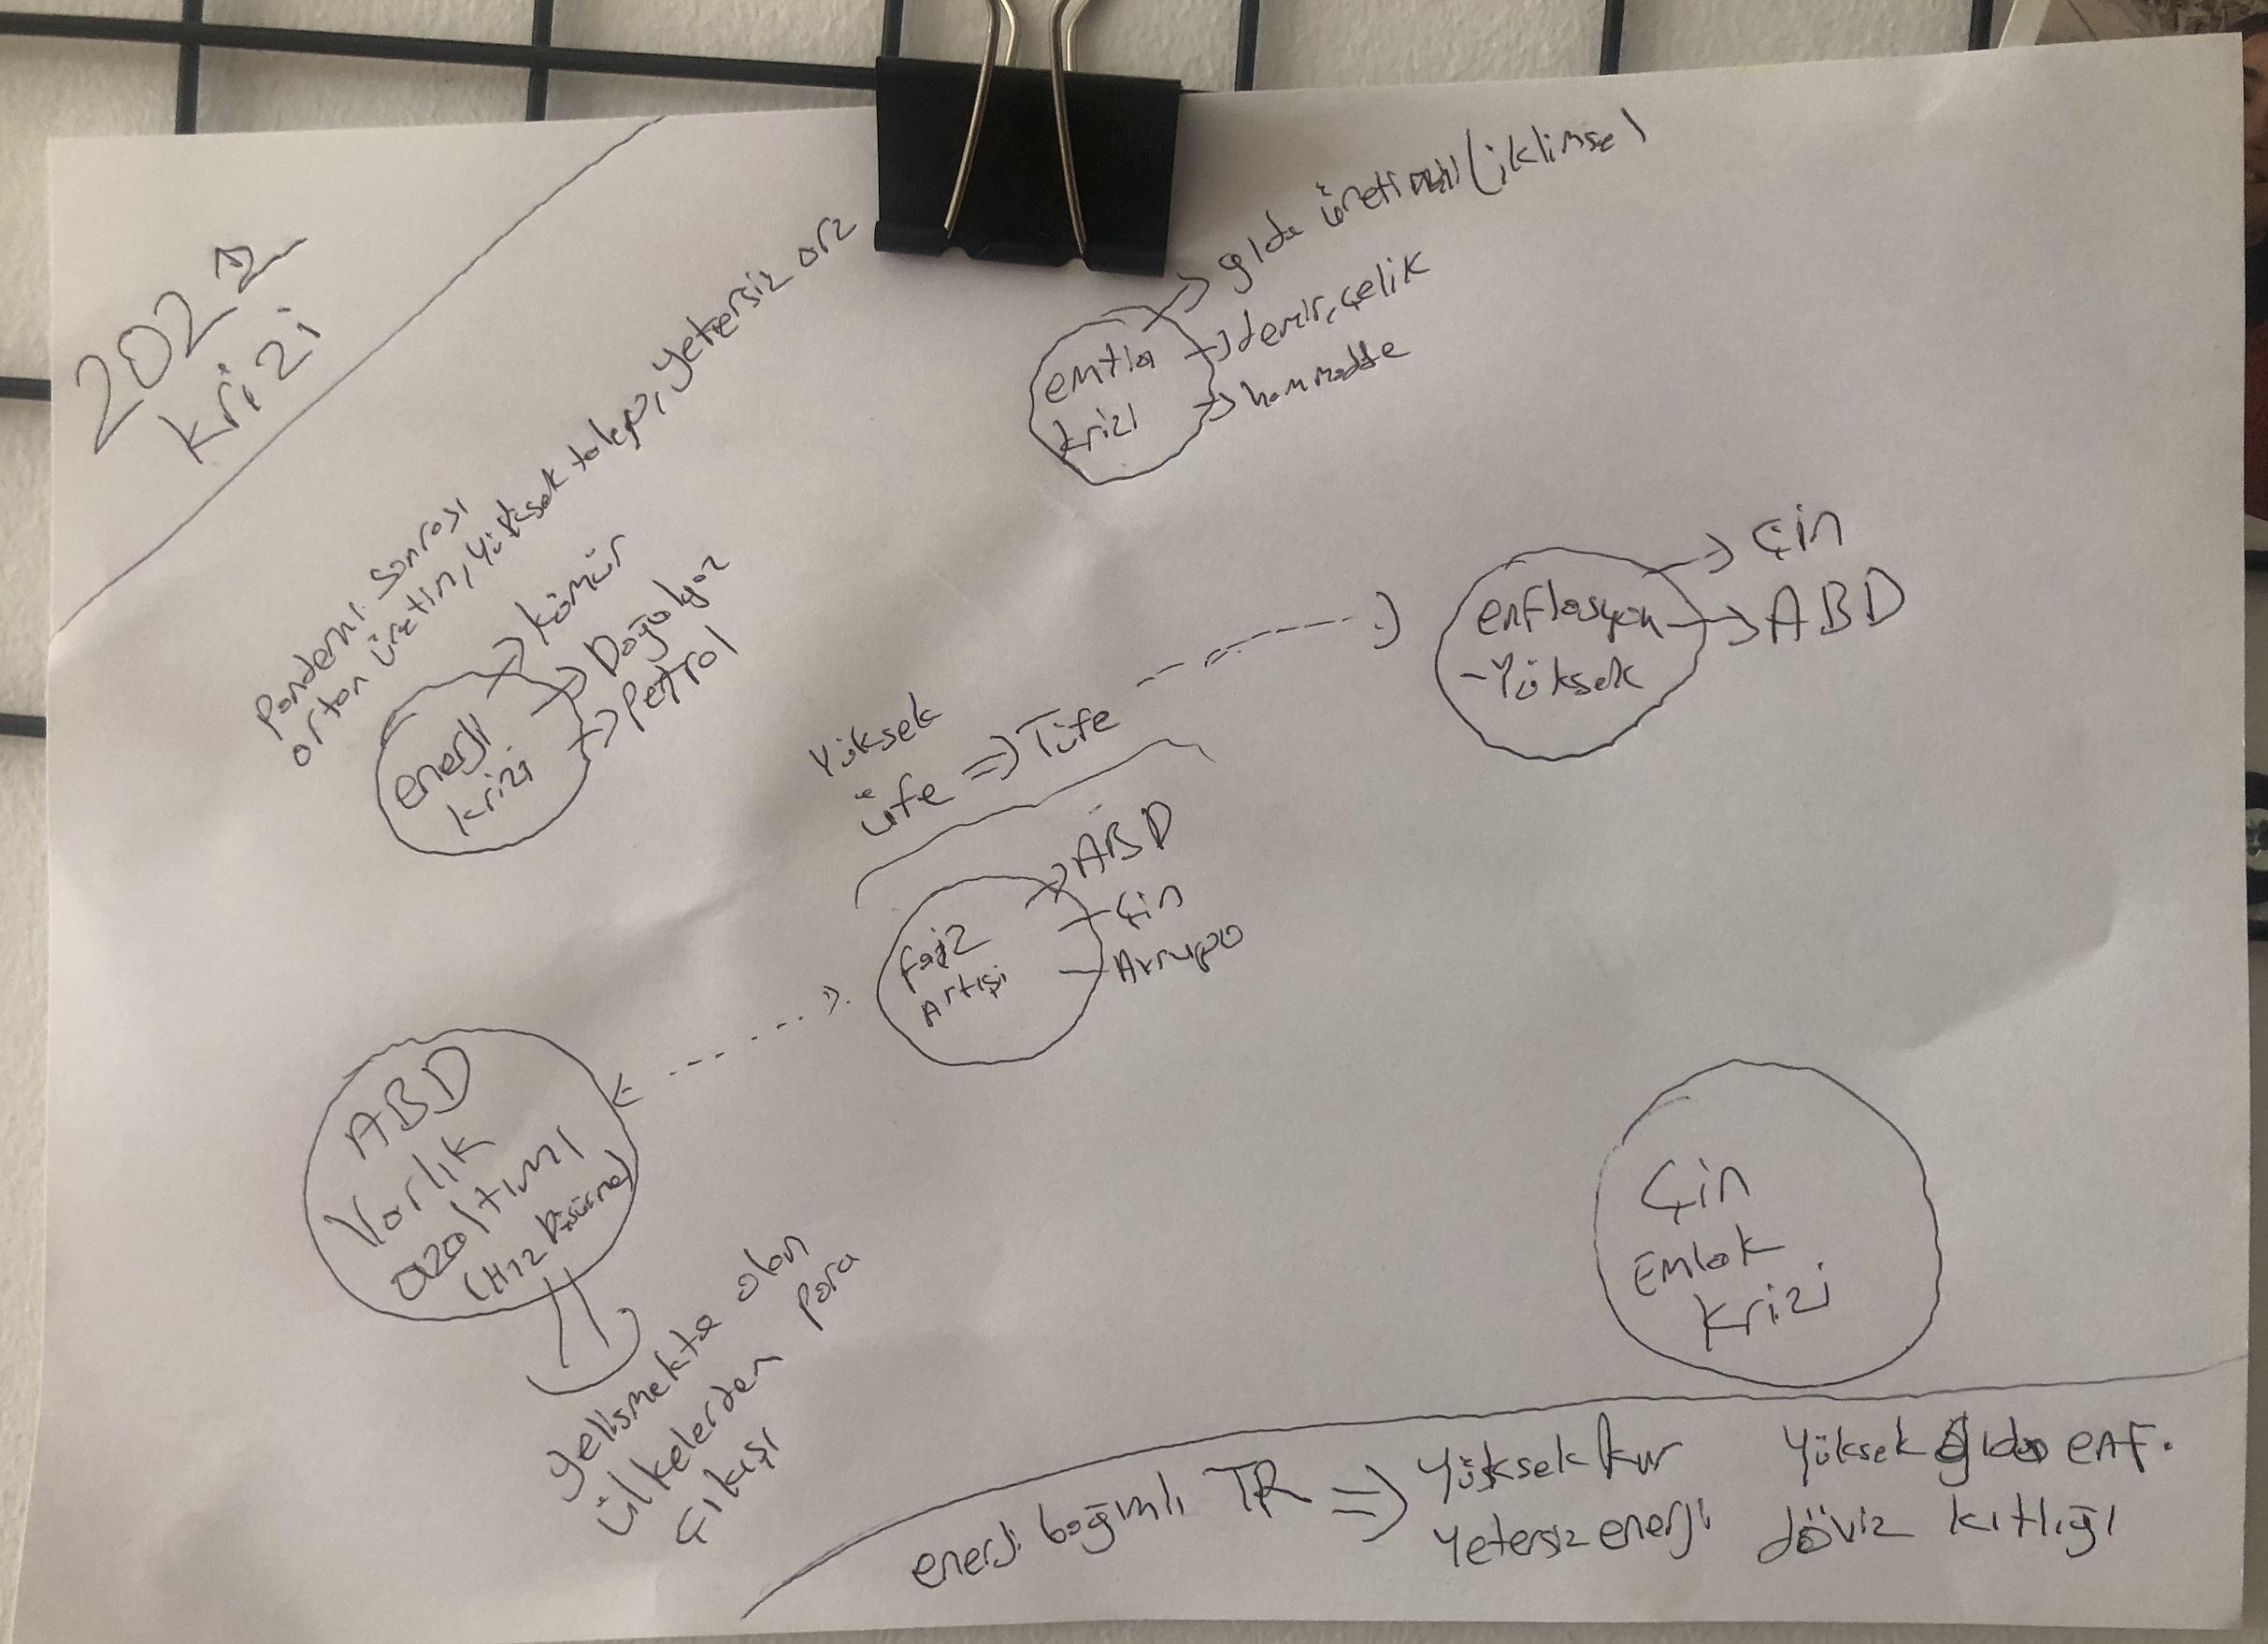 2022
krizi
Pandemi sonrası
artan üretim, yüksek talep, yetersiz arz
enerji
krizi
kömür
Doğalgaz
Petrol
emtia
krizi
gıda üretimi (iklimsel)
demir, çelik
hammadde
enflasyon
-Yüksek
Çin
ABD
Yüksek
üfe => Tüfe
faiz
Artışı
ABD
Çin
Avrupa
ABD
Varlık
azaltımı
(Hız Düşürme)
gelişmekte olan
ülkelerden para
çıkışı
Çin
Emlak
krizi
enerji bağımlı TR => Yüksek kur Yüksek gıda enf.
Yetersiz enerji döviz kıtlığı